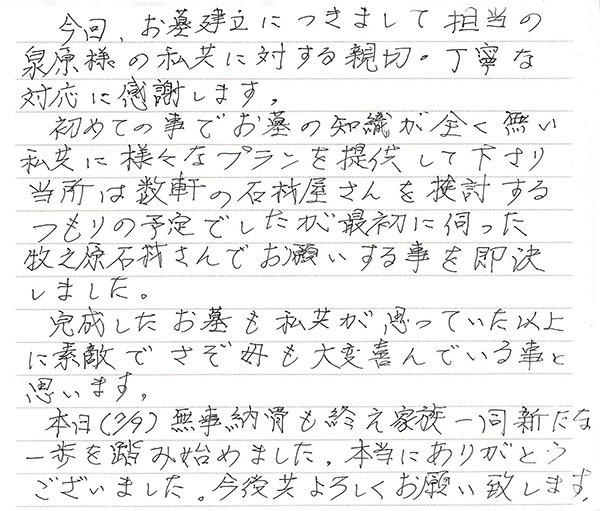 今回、お墓建立につきまして担当の
泉原様の私共に対する親切・丁寧な
対応に感謝します。
初めての事でお墓の知識が全く無い
私共に様々なプランを提供して下さり
当所は数軒の石材屋さんを検討する
つもりの予定でしたが最初に伺った
牧之原石材さんでお願いする事を即決
しました。
完成したお墓も私共が思っていた以上
に素敵でさぞ母も大変喜んでいる事と
思います。
本日(2/9)無事納骨も終え家族一同新たな
一歩を踏み始めました。本当にありがとう
ございました。今後共よろしくお願い致します。